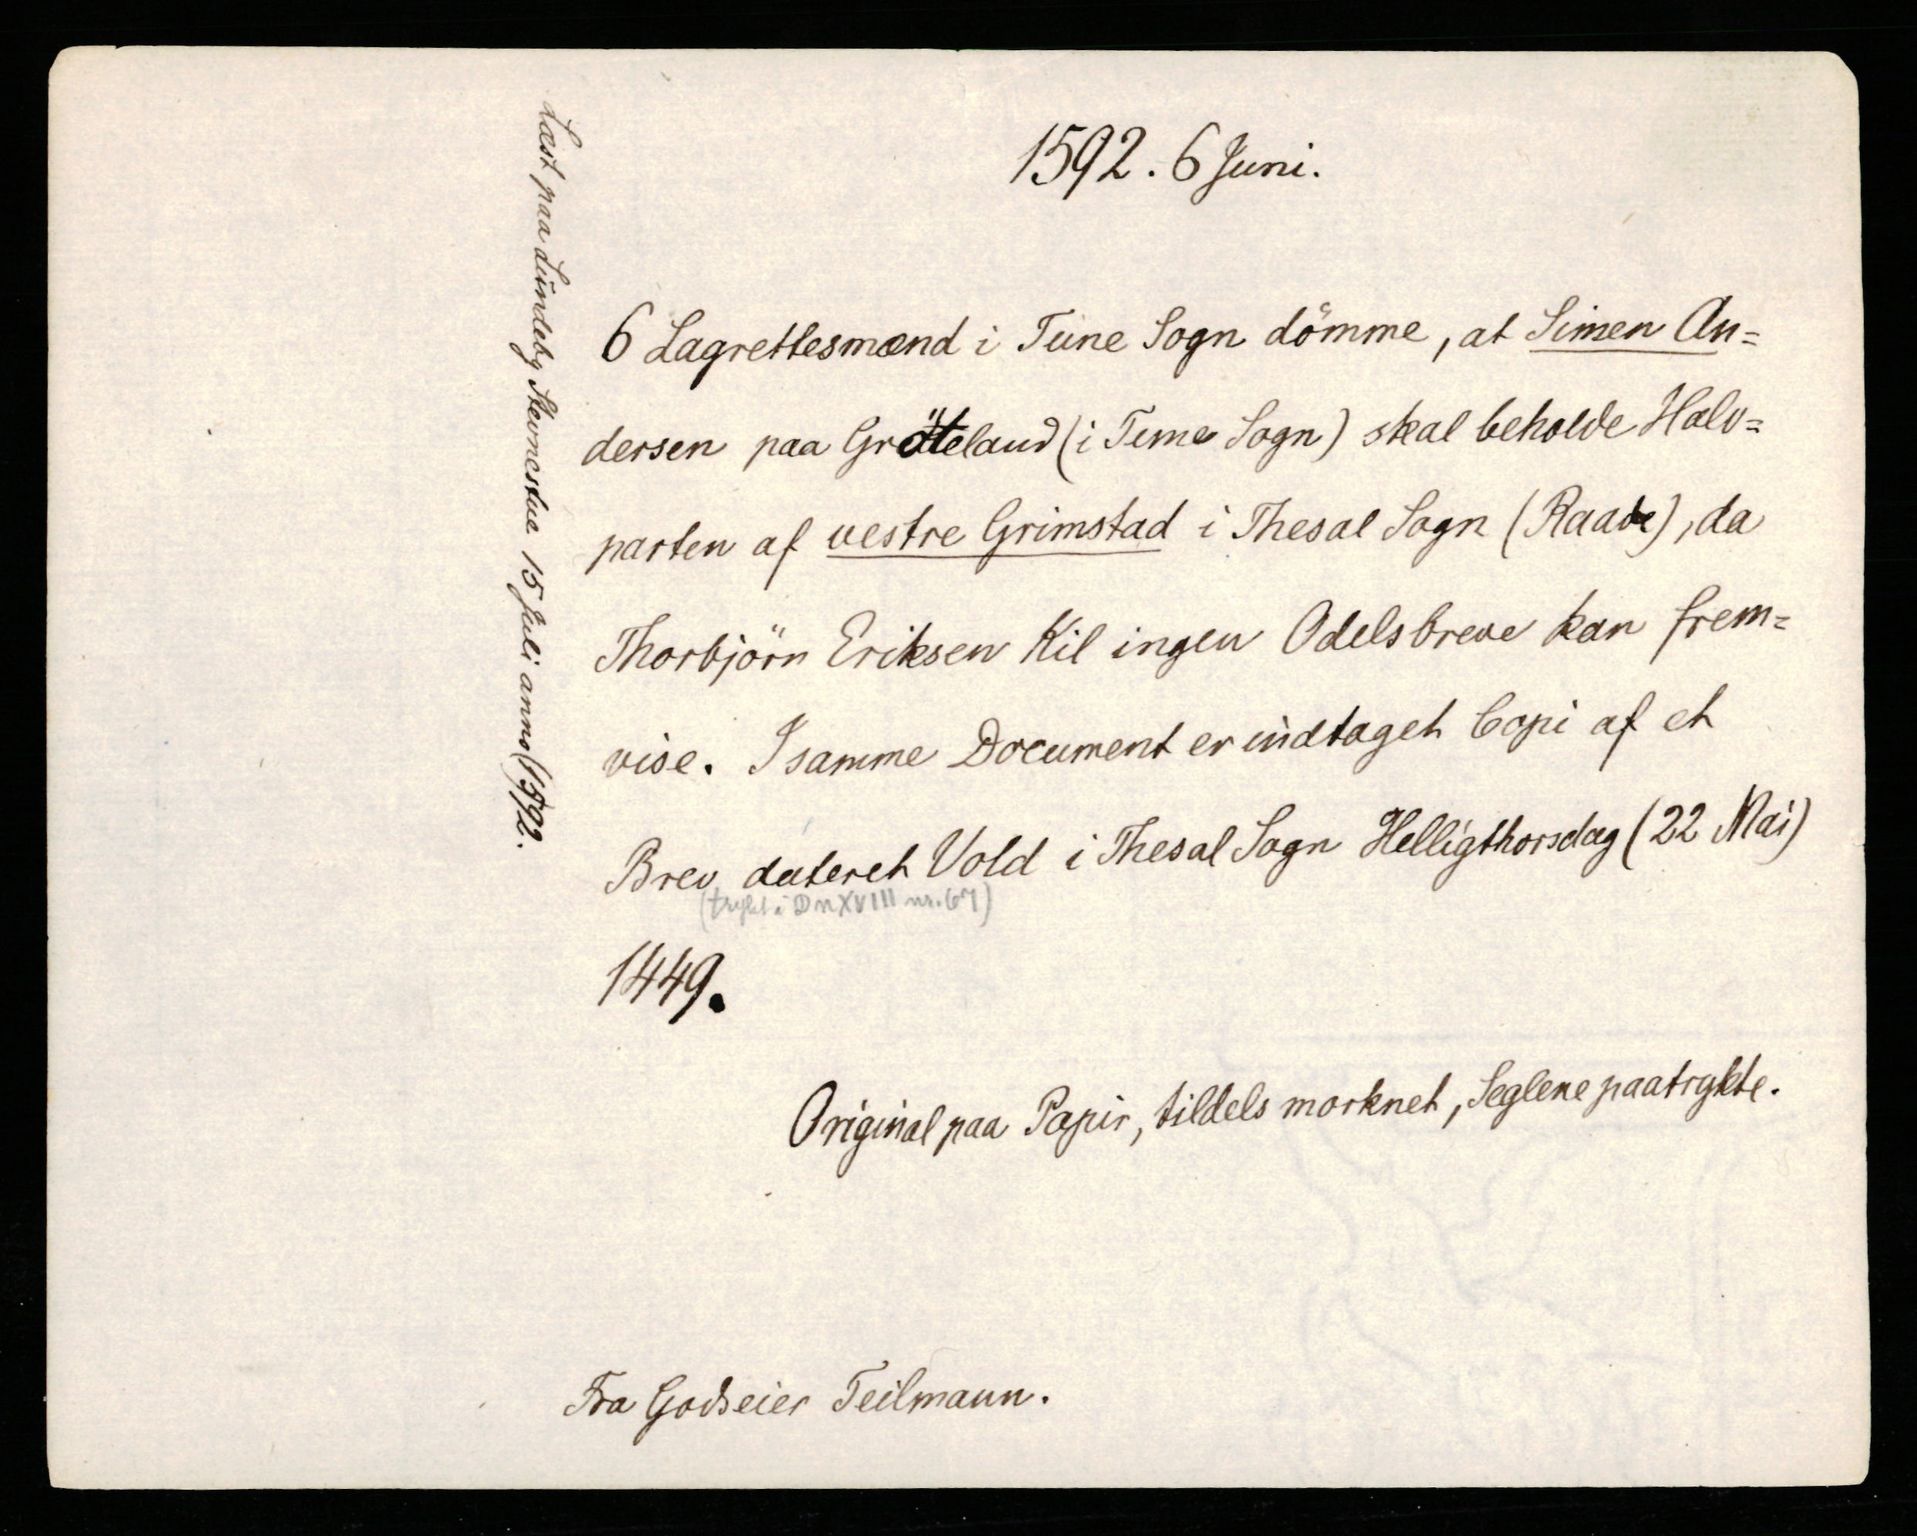 1592. 6 Juni.
6 Lagrettesmænd i Tune Sogn dömme, at Simen An=
dersen paa Gröteland (i Tune Sogn) skal beholde Halv=
parten af vestre Grimstad i Thesal Sogn (Raade), da
Thorbjörn Eriksen Kil ingen Odelsbreve kan frem=
vise. I samme Document er indtaget Copi af et
Brev dateret Vold i Thesal Sogn Helligthorsdag (22 Mai)
(trykt i DN XVIII nr. 67)
1449.
Original paa Papir, tildels morknet, Seglene paatrykte.
Fra Godseier Teilmann.
Læst paa Lundeby Stevnestue 15 Juli anno (15)92.